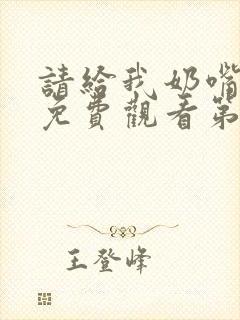 請給我奶嘴
免費觀看第
王登峰